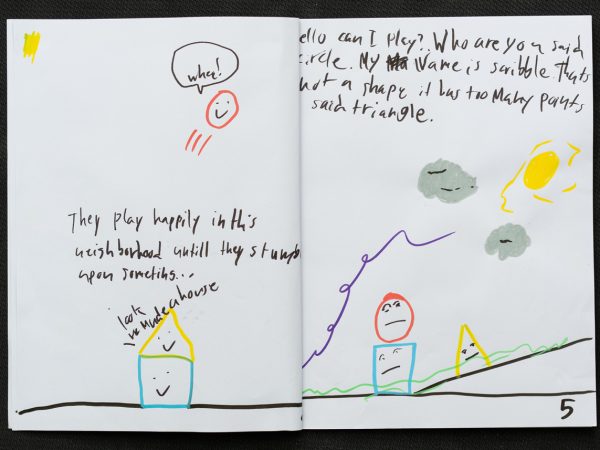 whee!
They play happily in this
neighborhood untill they stumb
upon
look
we made a house
ello can I play? Who are you said
ircle. My Name is scribble Thats
not a shape it has too Many points
said triangle.
5